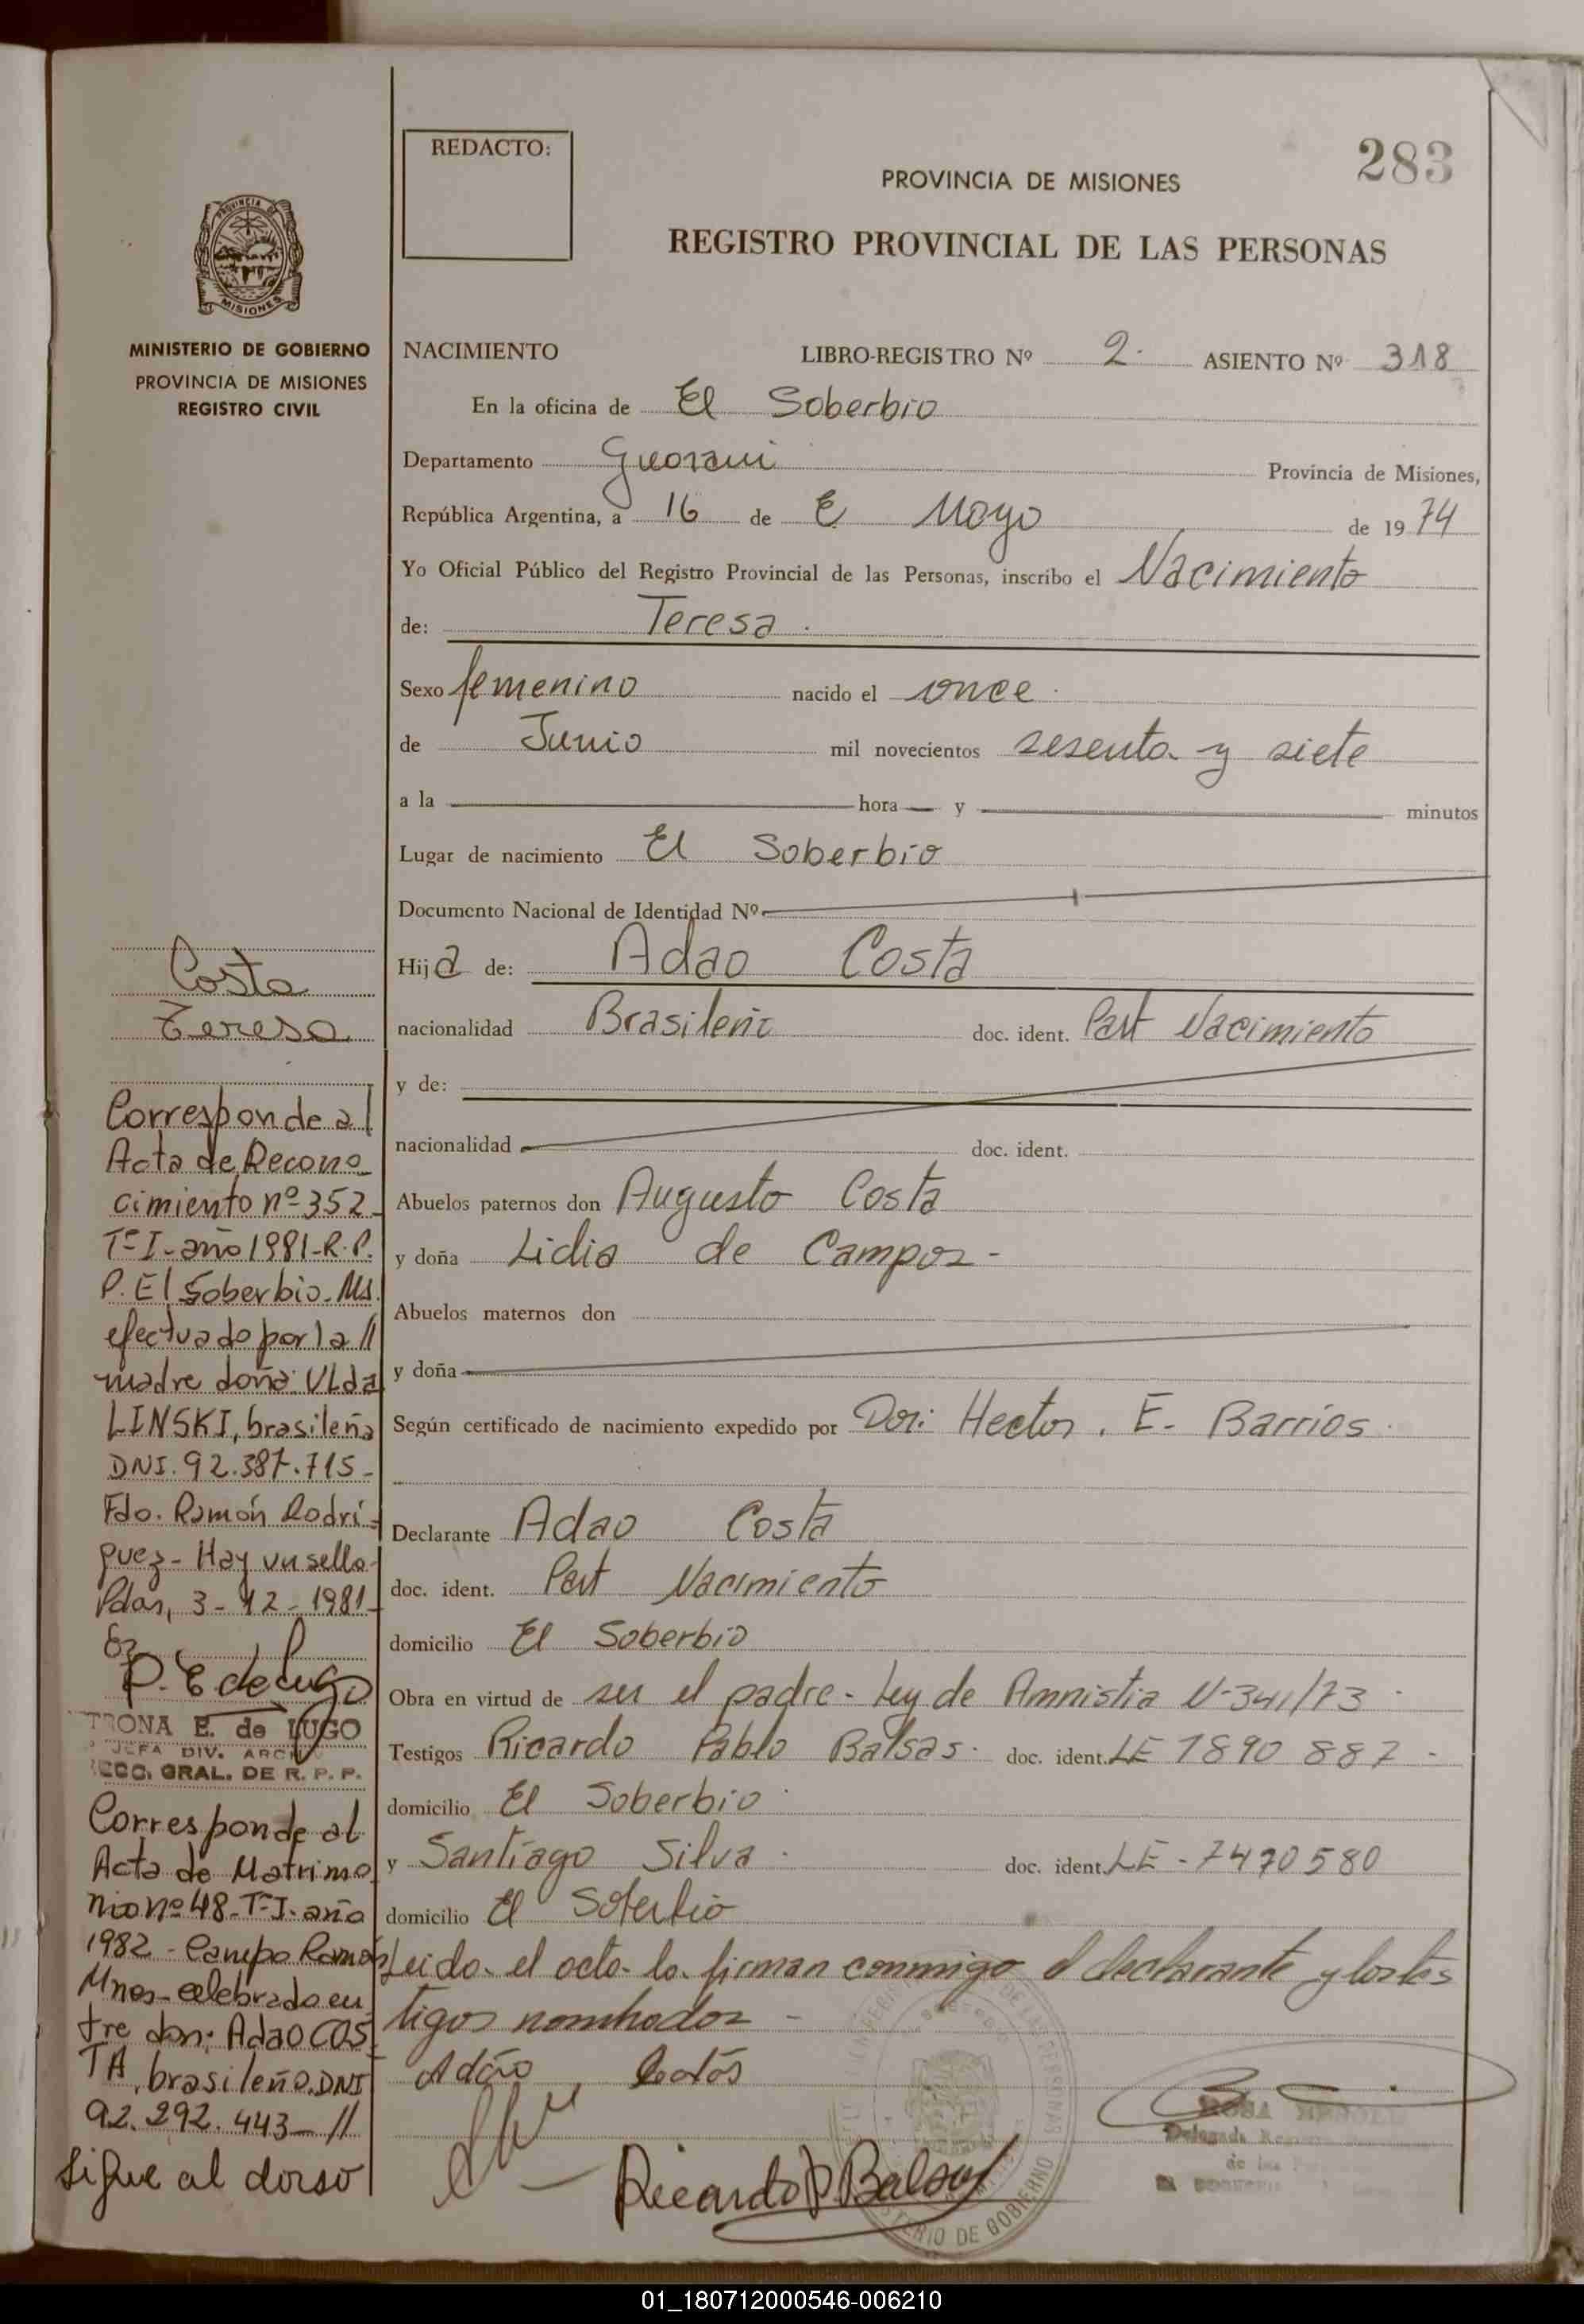 283
REDACTO:
PROVINCIA DE MISIONES
REGISTRO PROVINCIAL DE LAS PERSONAS
PROVINCIA DE
MISIONES
MINISTERIO DE GOBIERNO
PROVINCIA DE MISIONES
REGISTRO CIVIL
NACIMIENTO LIBRO-REGISTRO Nº 2. ASIENTO Nº 318
En la oficina de El Soberbio
Departamento Guarani Provincia de Misiones,
República Argentina, a 16 de E Mayo de 1974
Yo Oficial Público del Registro Provincial de las Personas, inscribo el Nacimiento
de: Teresa.
Sexo femenino nacido el once.
de Junio mil novecientos sesenta y siete
a la hora y minutos
Lugar de nacimiento El Soberbio
Documento Nacional de Identidad Nº
Hija de: Adao Costa
nacionalidad Brasileño doc. ident. Part Nacimiento
y de:
nacionalidad doc. ident.
Abuelos paternos don Augusto Costa
y doña Lidia de Campos-
Abuelos maternos don
y doña
Según certificado de nacimiento expedido por Don: Hector. E. Barrios.
Declarante Adao Costa
doc. ident. Part Nacimiento
domicilio El Soberbio
Obra en virtud de ser el padre- Ley de Amnistia N-341/73-
Testigos Ricardo Pablo Balsas. doc. ident. LE 7890 887-
domicilio El Soberbio.
y Santiago Silva. doc. ident. LE-7470580
domicilio El Soberbio
Leido el acta la firman conmigo el declarante y los tes
tigos nombrados-
Adão
Ricardo P. Balsas
MINISTERIO DE GOBIERNO
Costa
Teresa
Corresponde al
Acta de Recono_
cimiento nº 352_
Tº I-año 1981-R.P.
P. El Soberbio-Ms.
efectuado por la //
madre doña: Ulda
LINSKI, brasileña
DNI. 92.387.715-
Fdo. Ramón Rodrí-
guez- Hay un sello-
Pdas, 3-12-1981_
P. E de Lugo
TRONA E. de LUGO
JEFA DIV. ARCH
ECC. GRAL. DE R. P. P.
Corresponde al
Acta de Matrimo
nio nº 48-Tº I-año
1982-Campo Ramón
Mnes-celebrado en
tre don: Adao COS
TA, brasileño, DNI
92.292.443-//
Sigue al dorso
01_180712000546-006210